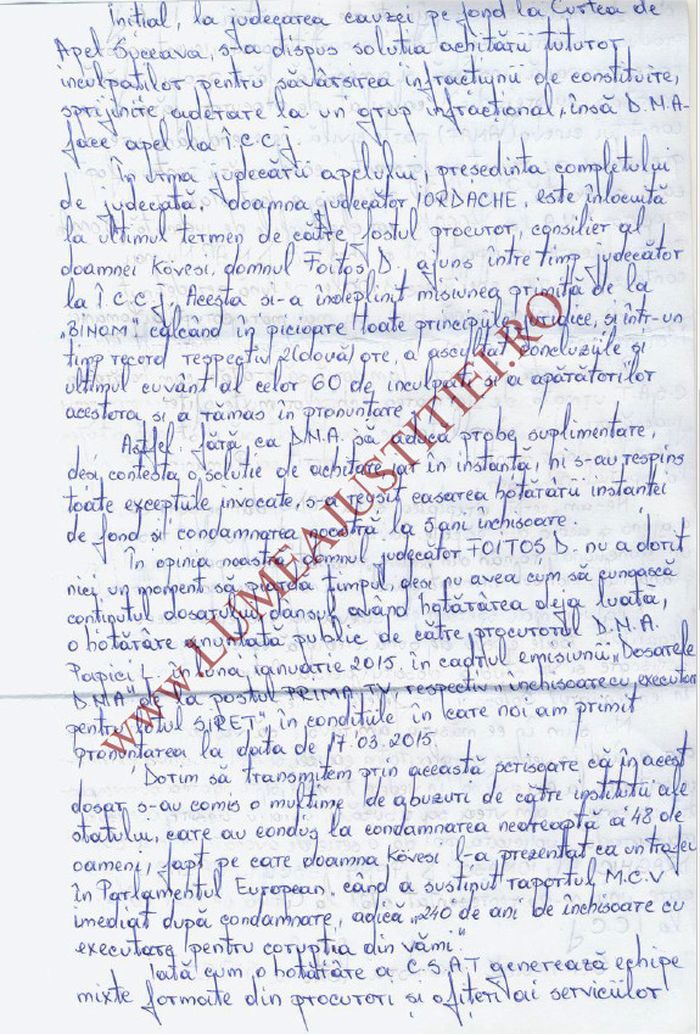 Inițial, la judecarea cauzei pe fond la Curtea de
Apel Suceava, s-a dispus soluția achitării tuturor
inculpaților pentru săvârsirea infracțiunii de constituire,
sprijinire, aderare la un grup infracțional, însă D.N.A.
face apel la Î.C.C.J.
În urma judecării apelului, președinta completului
de judecată, doamna judecător IORDACHE, este înlocuită
la ultimul termen de către fostul procuror, consilier al
doamnei Kövesi, domnul Foitoș D. ajuns între timp judecător
la Î.C.C.J. Acesta si-a îndeplinit misiunea primită de la
"BINOM" călcand în picioare toate principiile juridice, și într-un
timp record respectiv 2(două) ore, a ascultat concluziile și
ultimul cuvânt al celor 60 de inculpați și a apărătorilor
acestora și a rămas în pronunțare.
Astfel, fără ca D.N.A. să aducă probe suplimentare,
desi contesta o soluție de achitare iar în instanță, ni s-au respins
toate excepțiile invocate, s-a reușit casarea hotărârii instanței
de fond și condamnarea noastră la 5 ani închisoare.
În opinia noastră domnul judecător FOITOS D. nu a dorit
nici un moment să piardă timpul, desi nu avea cum să cunoască
conținutul dosarului, dânsul având hotărârea deja luată,
o hotărâre anunțată public de către procurorul D.N.A.
Papici L. în luna ianuarie 2015, în cadrul emisiunii "Dosarele
DNA" de la postul PRIMA TV, respectiv "închisoare cu executare
pentru lotul SIRET", în condițiile în care noi am primit
pronunțarea la data de 17.03.2015.
Dorim să transmitem prin această scrisoare că în acest
dosar s-au comis o mulțime de abuzuri de către instituții ale
statului, care au condus la condamnarea nedreaptă a 48 de
oameni, fapt pe care doamna Kövesi l-a prezentat ca un trofeu
în Parlamentul European, când a susținut raportul M.C.V
imediat după condamnare, adică "240 de ani de închisoare cu
executare pentru corupția din vămi".
Iată cum o hotărâre a C.S.A.T generează echipe
mixte formate din procurori și ofițeri ai serviciilor
www.LUMEAJUSTITIEI.RO